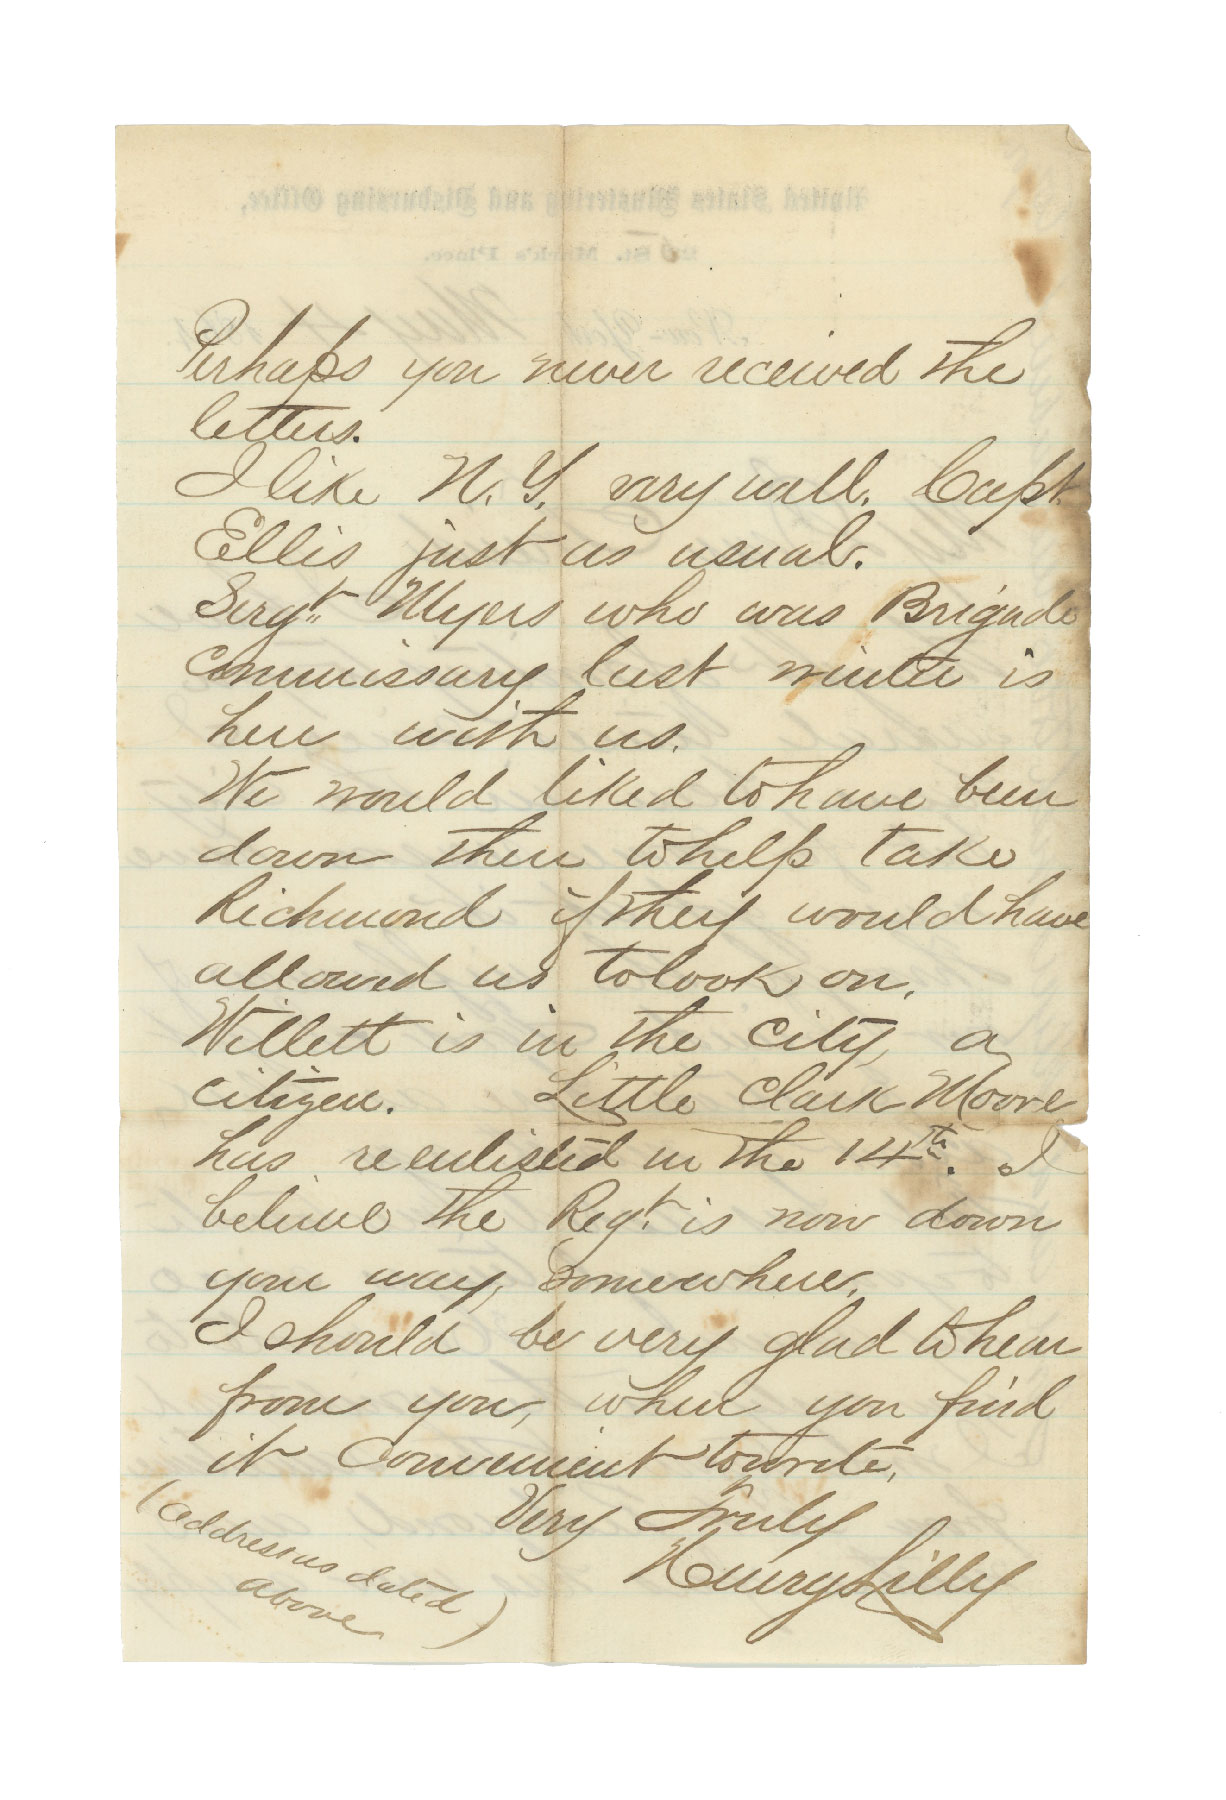 Perhaps you never received the
letters.
I like N. Y. very well. Capt.
Ellis just as usual.
Sergt. Myers who was Brigade
Commissary last winter is
here with us.
We would liked to have been
down there to help take
Richmond if they would have
allowed us to look on.
Willett is in the city, a
citizen. Little Clark Moore
has reenlisted in the 14th. I
believe the Regt. is now down
your way, somewhere.
I should be very glad to hear
from you, when you find
it convenient to write.
Very Truly
Henry Lilly
(address as dated
above)
United States Mustering and Disbursing Office,
St. Mark's Place.
New-York